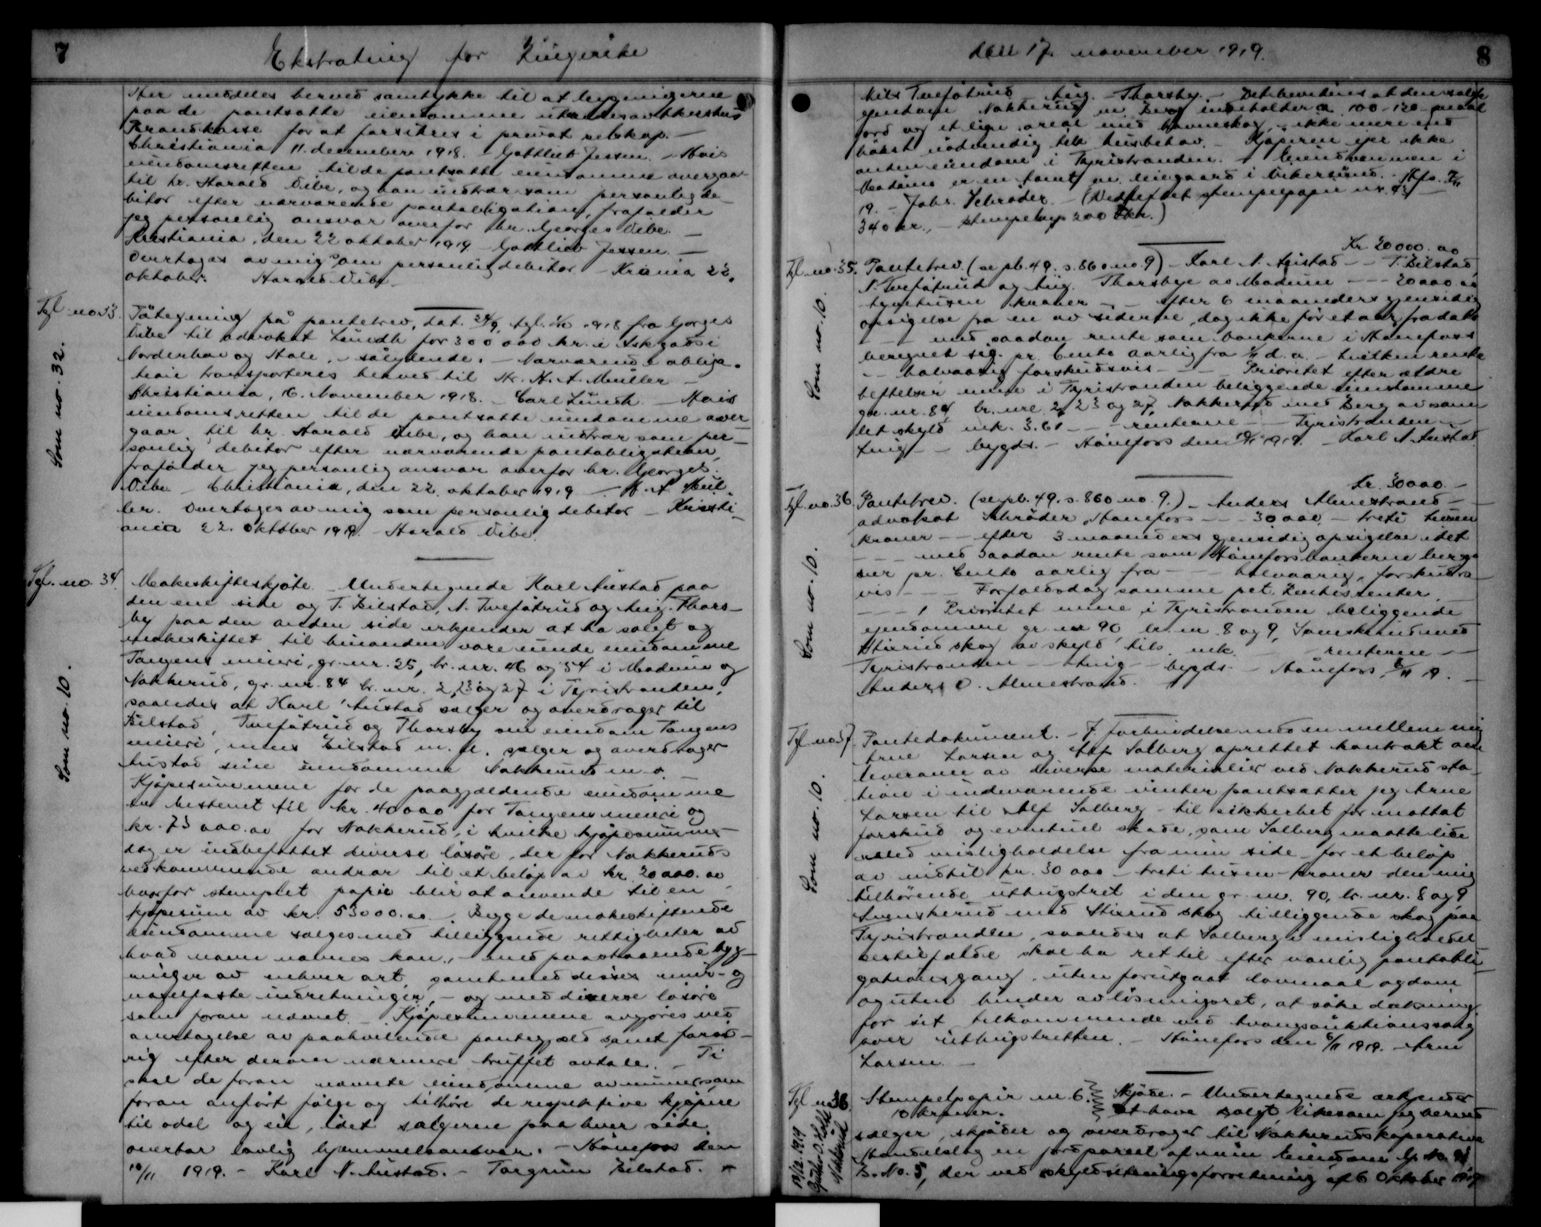 7
Ekstrating for Ringerike
Her meddeles herved samtykke til at bygningerne
paa de pantsatte eiendomme utmeldes av Akershus
Brandkasse for at forsikres i privat selskap. —
Christiania 11. december 1918. Gottlieb Jessen. — Hvis
eiendomsretten til de pantsatte eiendomme overgaar
til hr. Harald Vibe, og han indtrær som personlig de-
bitor efter nærværende pantobligation, frafalder
jeg personlig ansvar overfor hr. Georges Vibe. —
Kristiania, den 22 oktober 1919 — Gottlieb Jessen —
Overtages av mig som personlig debitor — Krania 22.
oktober. Harald Vibe
Tgl. no. 33.
Som no. 32.
Påtegning på pantebrev, dat. 24/9, tgl. 1918 fra Georges
Vibe til advokat Lundh for 300 000 kr. i
Norderhov og Hole, — sålydende: — Nærværende obliga-
tion transporteres herved til Hr. H. A. Müller —
Christiania, 16. November 1918. — Carl Lundh — Hvis
eiendomsretten til de pantsatte eiendomme over-
gaar til hr. Harald Vibe, og han indtrær som per-
sonlig debitor efter nærværende pantobligation,
frafalder jeg personlig ansvar overfor hr. Georges
Vibe — Christiania, den 22. oktober 1919 — H. A. Mül-
ler. Overtages av mig som personlig debitor — Kristi-
ania 22. oktober 1919. — Harald Vibe
Tgl. no. 34.
Som no. 10.
Makeskifteskjøte. Undertegnede Karl Austad paa
den ene side og T. Eilstad, N. Tvejåtrud og Aug. Thors-
by paa den anden side erkjender at ha solgt og
makeskiftet til hinanden vore eiende eiendomme
Tangens meieri, gr. nr. 25, br. nr. 46 og 54 i Modum og
Nakkerud, gr. nr. 84 br. nr. 2, 23 og 27 i Tyristranden,
saaledes at Karl Austad sælger og overdrager til
Eilstad, Tvejåtrud og Thorsby sin eiendom Tangens
meieri, mens Eilstad m. fl. sælger og overdrager
Austad sine eiendomme Nakkerud m. v. —
Kjøpesummene for de paagjældende eiendomme
er bestemt til kr. 40 000 for Tangens meieri og
kr. 73 000.00 for Nakkerud, i hvilke kjøpesummer
dog er indbefattet diverse løsøre, der for Nakkeruds
vedkommende andrar til et beløp av kr. 20 000.00
hvorfor stemplet papir blir at anvende til en
kjøpesum av kr. 53000.00. Begge de makeskiftende
eiendomme sælges med tilliggende rettigheter av
hvad navn nævnes kan, med paastaaende byg-
ninger av enhver art, samt med disses mur- og
nagelfaste indretninger, — og med diverse løsøre
som foran nævnt. Kjøpesummene avgjøres ved
overtagelse av paahvilende pantegjæld samt forøv-
rig efter derom nærmere truffet avtale. — Ti
skal de foran nævnte eiendomme av nummer som
foran anført følge og tilhøre de respektive kjøpere
til odel og eie, idet sælgerne paa hver side
overtar lovlig hjemmelsansvar. — Hønefoss den
10/11 1919. — Karl N. Austad. — Torgrim Eilstad. —
den 17. november 1919.
8
Nils Tvejåtrud Aug. Thorsby. — Det bevidnes at den solgte
eiendom Nakkerud m. Berg indeholder ca. 100-120 maal
jord og et lign. areal med havneskog, ikke mere end
høist nødvendig til husbehov. — Kjøperen eier ikke
anden eiendom i Tyristranden. — Eiendommen i
Modum er en tomt m. leiegaard i Vikersund. Hfs. 7/11
19. — Johs. Schrøder. — (Vedheftet stempelpapir nr. 4
340 kr., — stempelmrk. 200 kr.)
Kr. 20000.00
Tgl. no. 35.
Som no. 10.
Pantebrev. (se pb. 49. s. 860 no 9) — Karl N. Austad — T. Eilstad,
N. Tvejåtrud og Aug. Thorsbye av Modum — 20000.00
tyvetusen kroner — efter 6 maaneders gjensidig
opsigelse fra en av siderne, dog ikke før et aar fra dato
— med saadan rente som bankerne i Hønefoss
beregnet sig pr. Cento aarlig fra d. a. — hvilken rente
— halvaarig forskudsvis — Prioritet efter ældre
heftelser mine i Tyristranden beliggende eiendomme
gr. nr. 84 br. nre. 2, 23 og 27, Nakkerud med Berg av sam-
let skyld mk. 3.61 — renterne — Tyristranden —
ting — bygds. — Hønefoss den 10/11 1919 — Karl N. Austad
Kr. 30000 —
Tgl. no. 36
Som no. 10.
Pantebrev. (se pb. 49. s. 860 no 9.) — Anders Almestrand —
advokat Schrøder, Hønefoss — 30 000 — treti tusen
kroner — efter 3 maaneders gjensidig opsigelse idet
— med saadan rente som Hønefossbankerne bereg-
ner pr. Cento aarlig fra — halvaarig, forskuds-
vis — Forfaldsdag samme pct. Rentesrenter
— 1 Prioritet mine i Tyristranden beliggende
eiendomme gr. nr 90, br. nr. 8 og 9, Svenskerud med
Stixrud skog av skyld tils. mk. — renterne —
Tyristranden — ting — bygds. — Hønefoss, 6/11 19. —
Anders O. Almestrand.
Tgl. no. 37.
Som no. 10.
Pantedokument. — I forbindelse med en mellem mig
Arne Larsen og Alf Solberg oprettet kontrakt om
leverance av diverse materialier ved Nakkerud sta-
tion i indeværende vinter pantsætter jeg Arne
Larsen til Alf Solberg — til sikkerhet for mottat
forskud og eventuel skade, som Solberg maatte lide
ved misligholdelse fra min side — for et beløp
av indtil kr. 30 000 — treti tusen — kroner den mig
tilhørende uthugstret i den gr. nr. 90, br. nr. 8 og 9
Svenskerud med Stixrud skog tilliggende skog paa
Tyristranden, saaledes at Solberg i misligholdel-
sestilfælde skal ha ret til efter vanlig pantobli-
gationsgang uten forutgaat lovmaal og dom
og uten hinder av løsningsret, at søke dækning
for sit tilkommende ved tvangsauktionssalg
over uthugstretten. — Hønefoss den 6/11 1919. — Arne
Larsen. —
Tgl. no. 38.
Stempelpapir nr. 6. Skjøde. — Undertegnede erkjender
0 kroner. at have solgt, likesom jeg herved
sælger, skjøder og overdrager til Nakkeruds kooperative
Handelslag en jordparsel af min Eiendom G. No. 91
B. No. 5, der ved skyldsetningsforretning af 6 Oktober 1919